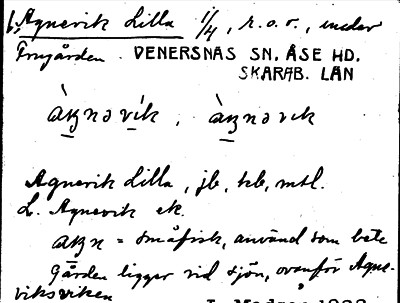 Agnevik Lilla 1/4, r.o.r., under
Frugården. VENERSNÄS SN. ÅSE HD.
SKARAB. LÄN
Agnevik Lilla, jb, tkb, mtl.
L. Agnevik ek.
= småfisk, använd som bete
Gården ligger vid sjön, ovanför Agne-
viksviken